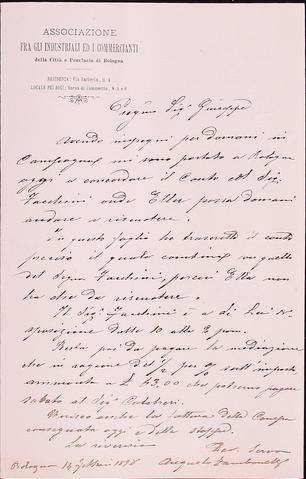 ASSOCIAZIONE
FRA GLI INDUSTRIALI ED I COMMERCIANTI
della Città e Provincia di Bologna
RESIDENZA: Via Barberia, N. 4
LOCALE PEI SOCI: Borsa di Commercio, N. 5 e 6
Pregmo Sigr Giuseppe
Avendo impegni per domani in
Campagna mi sono portato a Bologna
oggi a concordare il Conto del Sigr
Facchini onde Ella possa domani
andare a riscuotere.
In questo foglio ho trascritto il conto
preciso il quale combina con quello
del Signr Facchini, percui Ella non
ha che da riscuotere.
Il Sigr Facchini è a di Lei di-
sposizione dalle 10 alle 2 pom.
Resta poi da pagare la mediazione
che in ragione del ½ per % sull'importo
ammonta a £ 43,00 che potremo pagare
sabato al Sigr
Unisco anche la fattura della Canepa
consegnata oggi e della stoppa.
La riverisco
Dev. Servo
Bologna 14 1898 Augusto Zambonelli